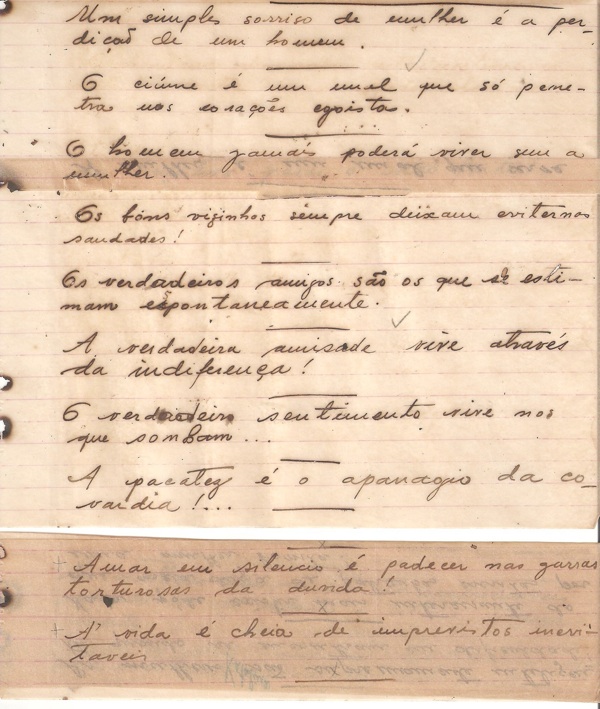 Um simples sorriso de mulher é a per-
dição de um homem.
O ciúme é um mal que só pene-
tra nos corações egoista.
O homem jamais poderá viver sem a
mulher.
Os bons vizinhos sempre deixam eviternas
saudades!
Os verdadeiros amigos são os que se esti-
mam espontaneamente.
A verdadeira amisade vive através
da indiferença!
O verdadeiro sentimento vive nos
que sonham...
A pacatez é o apanagio da co-
vardia!...
Amar em silencio é padecer nas garras
torturosas da duvida!
A vida é cheia de imprevistos inevi-
taveis